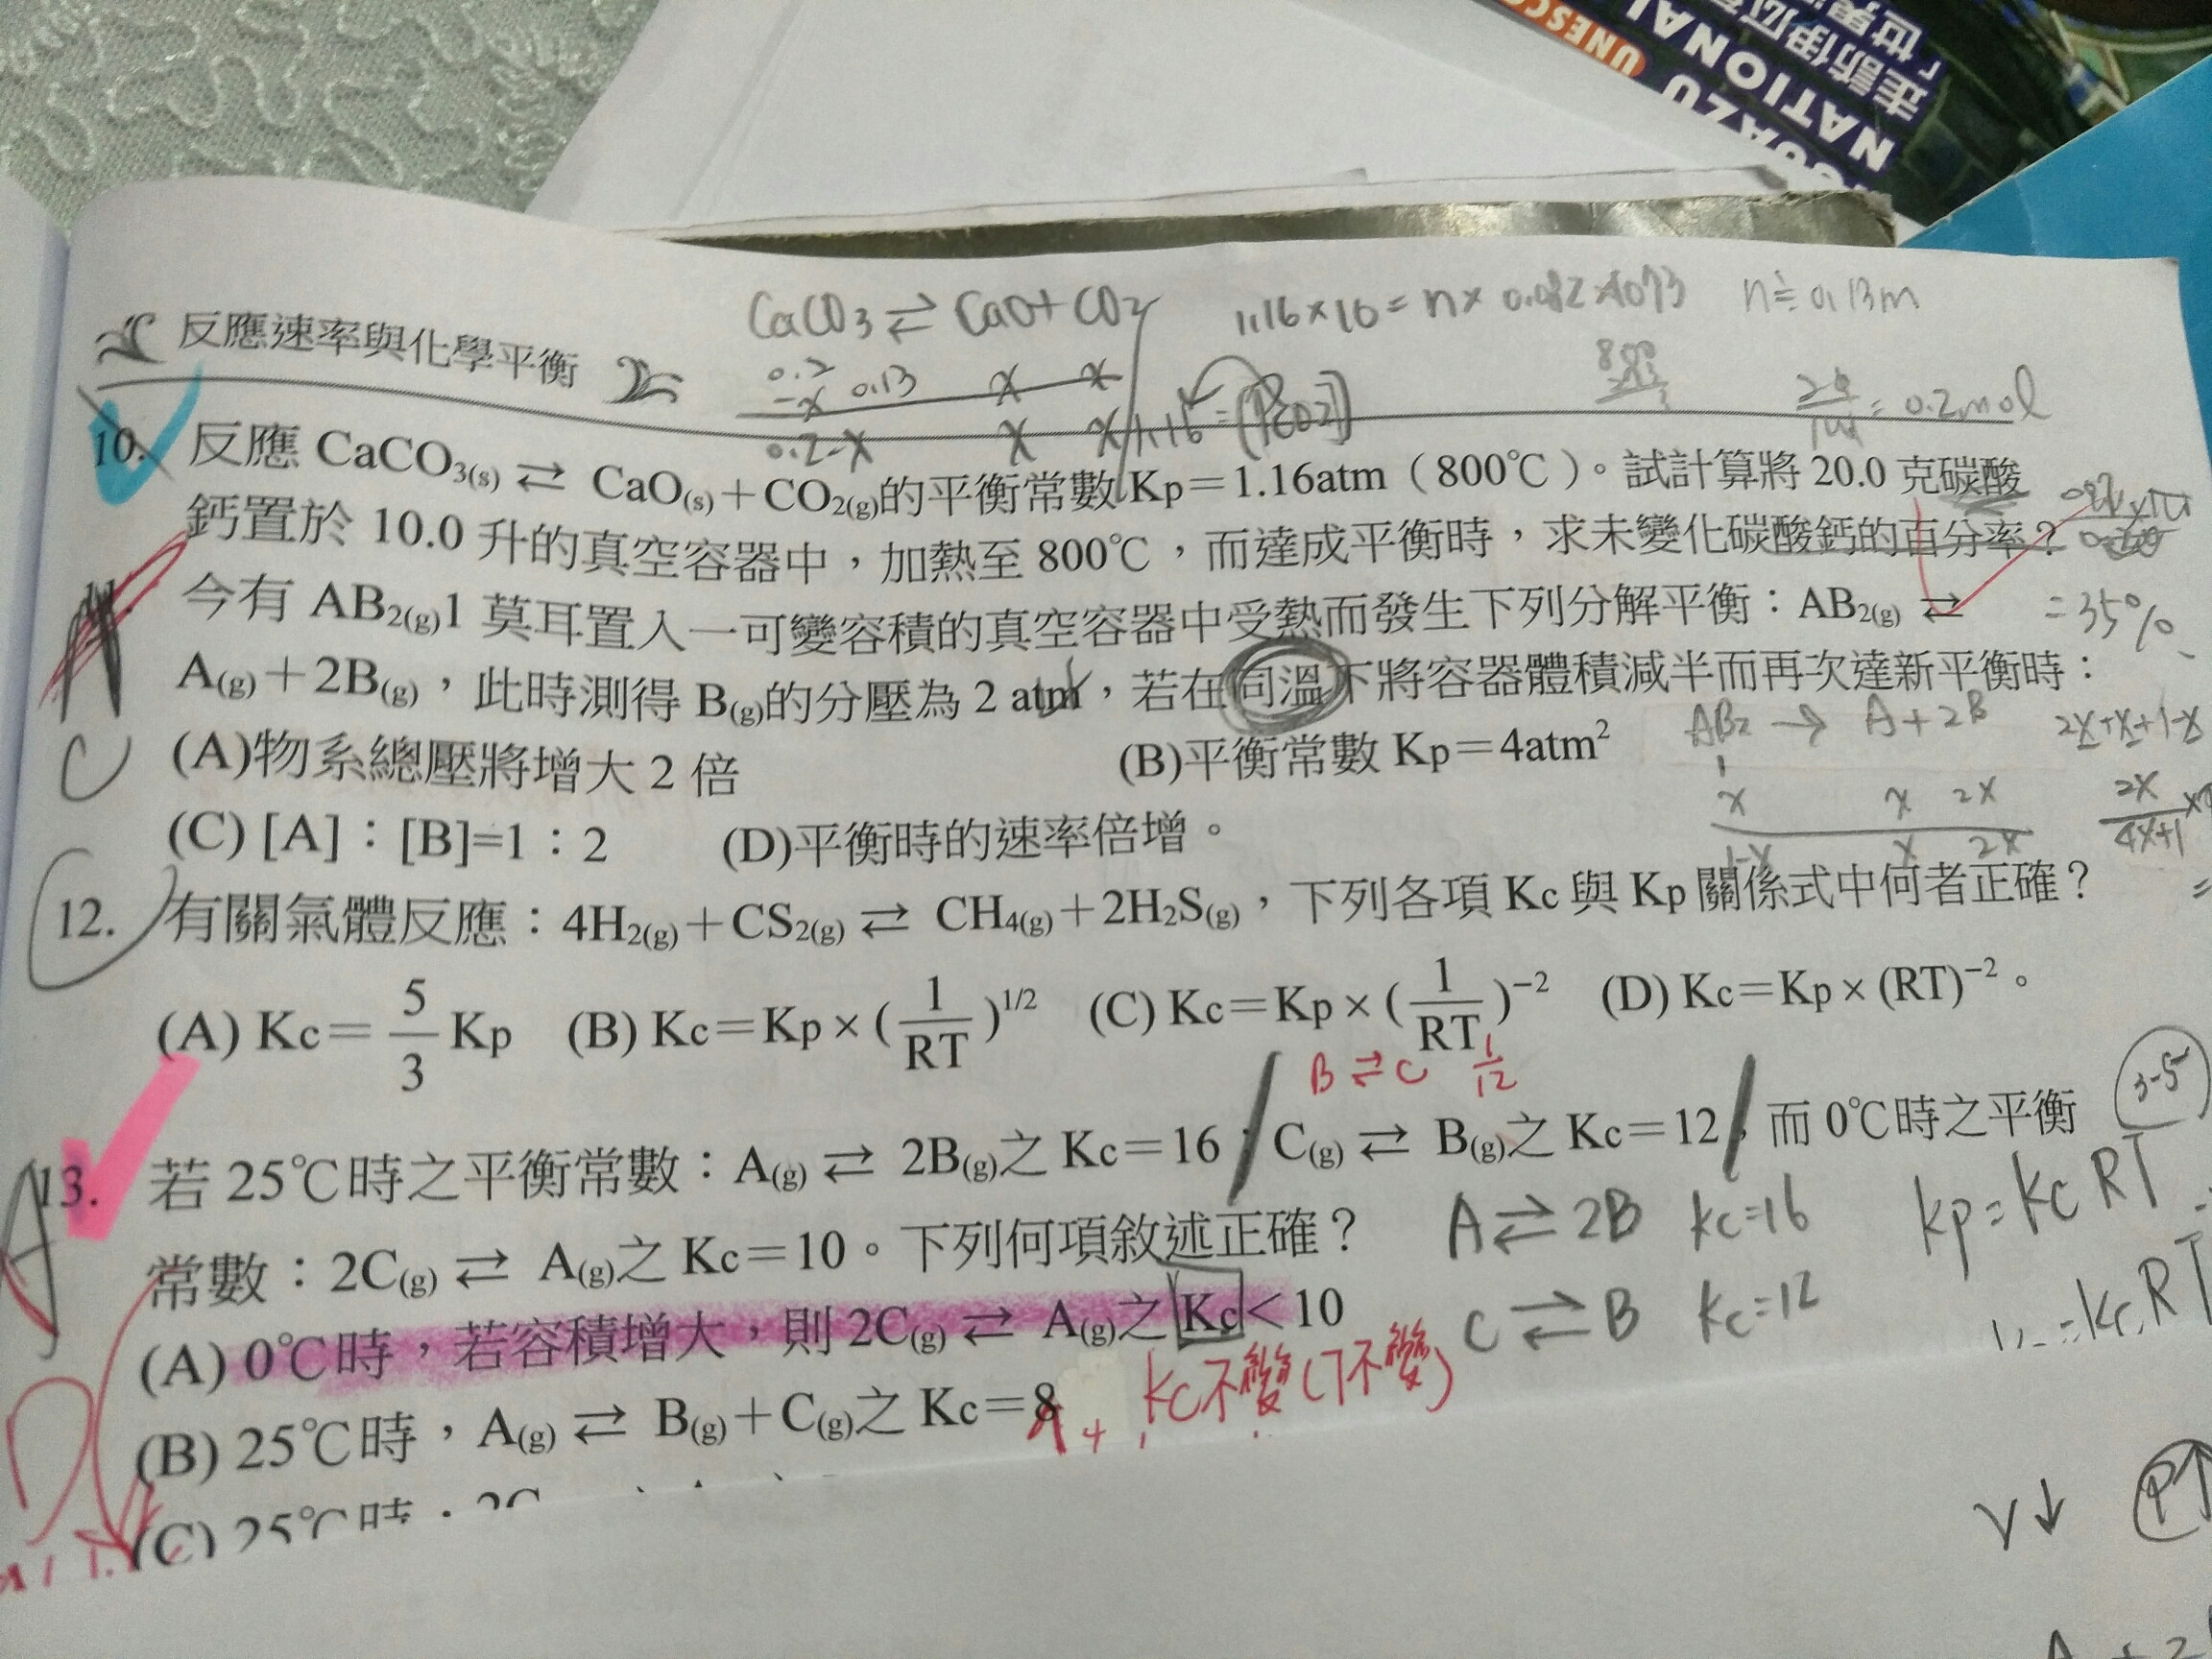 UNESCO
NATIONAL
走訪伊瓜
「世界
CaCO3 ⇄ CaO + CO2
1.16×10 = n× 0.082×1073 n≒0.13m
反應速率與化學平衡
0.2 0.13 x x
-x
0.2-x x x
1.16 = [PCO2]
= 0.2mol
10. 反應 CaCO3(s) ⇄ CaO(s)＋CO2(g)的平衡常數 Kp＝1.16atm（800℃）。試計算將 20.0 克碳酸
鈣置於 10.0 升的真空容器中，加熱至 800℃，而達成平衡時，求未變化碳酸鈣的百分率？
=35%
11. 今有 AB2(g)1 莫耳置入一可變容積的真空容器中受熱而發生下列分解平衡：AB2(g) ⇄
A(g)＋2B(g)，此時測得 B(g)的分壓為 2 atm，若在同溫下將容器體積減半而再次達新平衡時：
AB2 → A+2B 2x+x+1-x
C
(A)物系總壓將增大 2 倍 (B)平衡常數 Kp＝4atm²
1
x x 2x
1-x x 2x
2x
4x+1
(C) [A]：[B]=1：2 (D)平衡時的速率倍增。
12. 有關氣體反應：4H2(g)＋CS2(g) ⇄ CH4(g)＋2H2S(g)，下列各項 Kc 與 Kp 關係式中何者正確？
(A) Kc＝5/3 Kp (B) Kc＝Kp×(1/RT)^1/2 (C) Kc＝Kp×(1/RT)^−2 (D) Kc＝Kp×(RT)^−2。
B ⇄ C 1/12
3-5
13. 若 25℃時之平衡常數：A(g) ⇄ 2B(g)之 Kc＝16；C(g) ⇄ B(g)之 Kc＝12，而 0℃時之平衡
常數：2C(g) ⇄ A(g)之 Kc＝10。下列何項敘述正確？
A ⇄ 2B kc=16
kp=kc RT
(A) 0℃時，若容積增大，則 2C(g) ⇄ A(g)之 Kc＜10
C ⇄ B kc=12
kc不變(T不變)
(B) 25℃時，A(g) ⇄ B(g)＋C(g)之 Kc＝8
(C) 25℃時
V↓ P↑